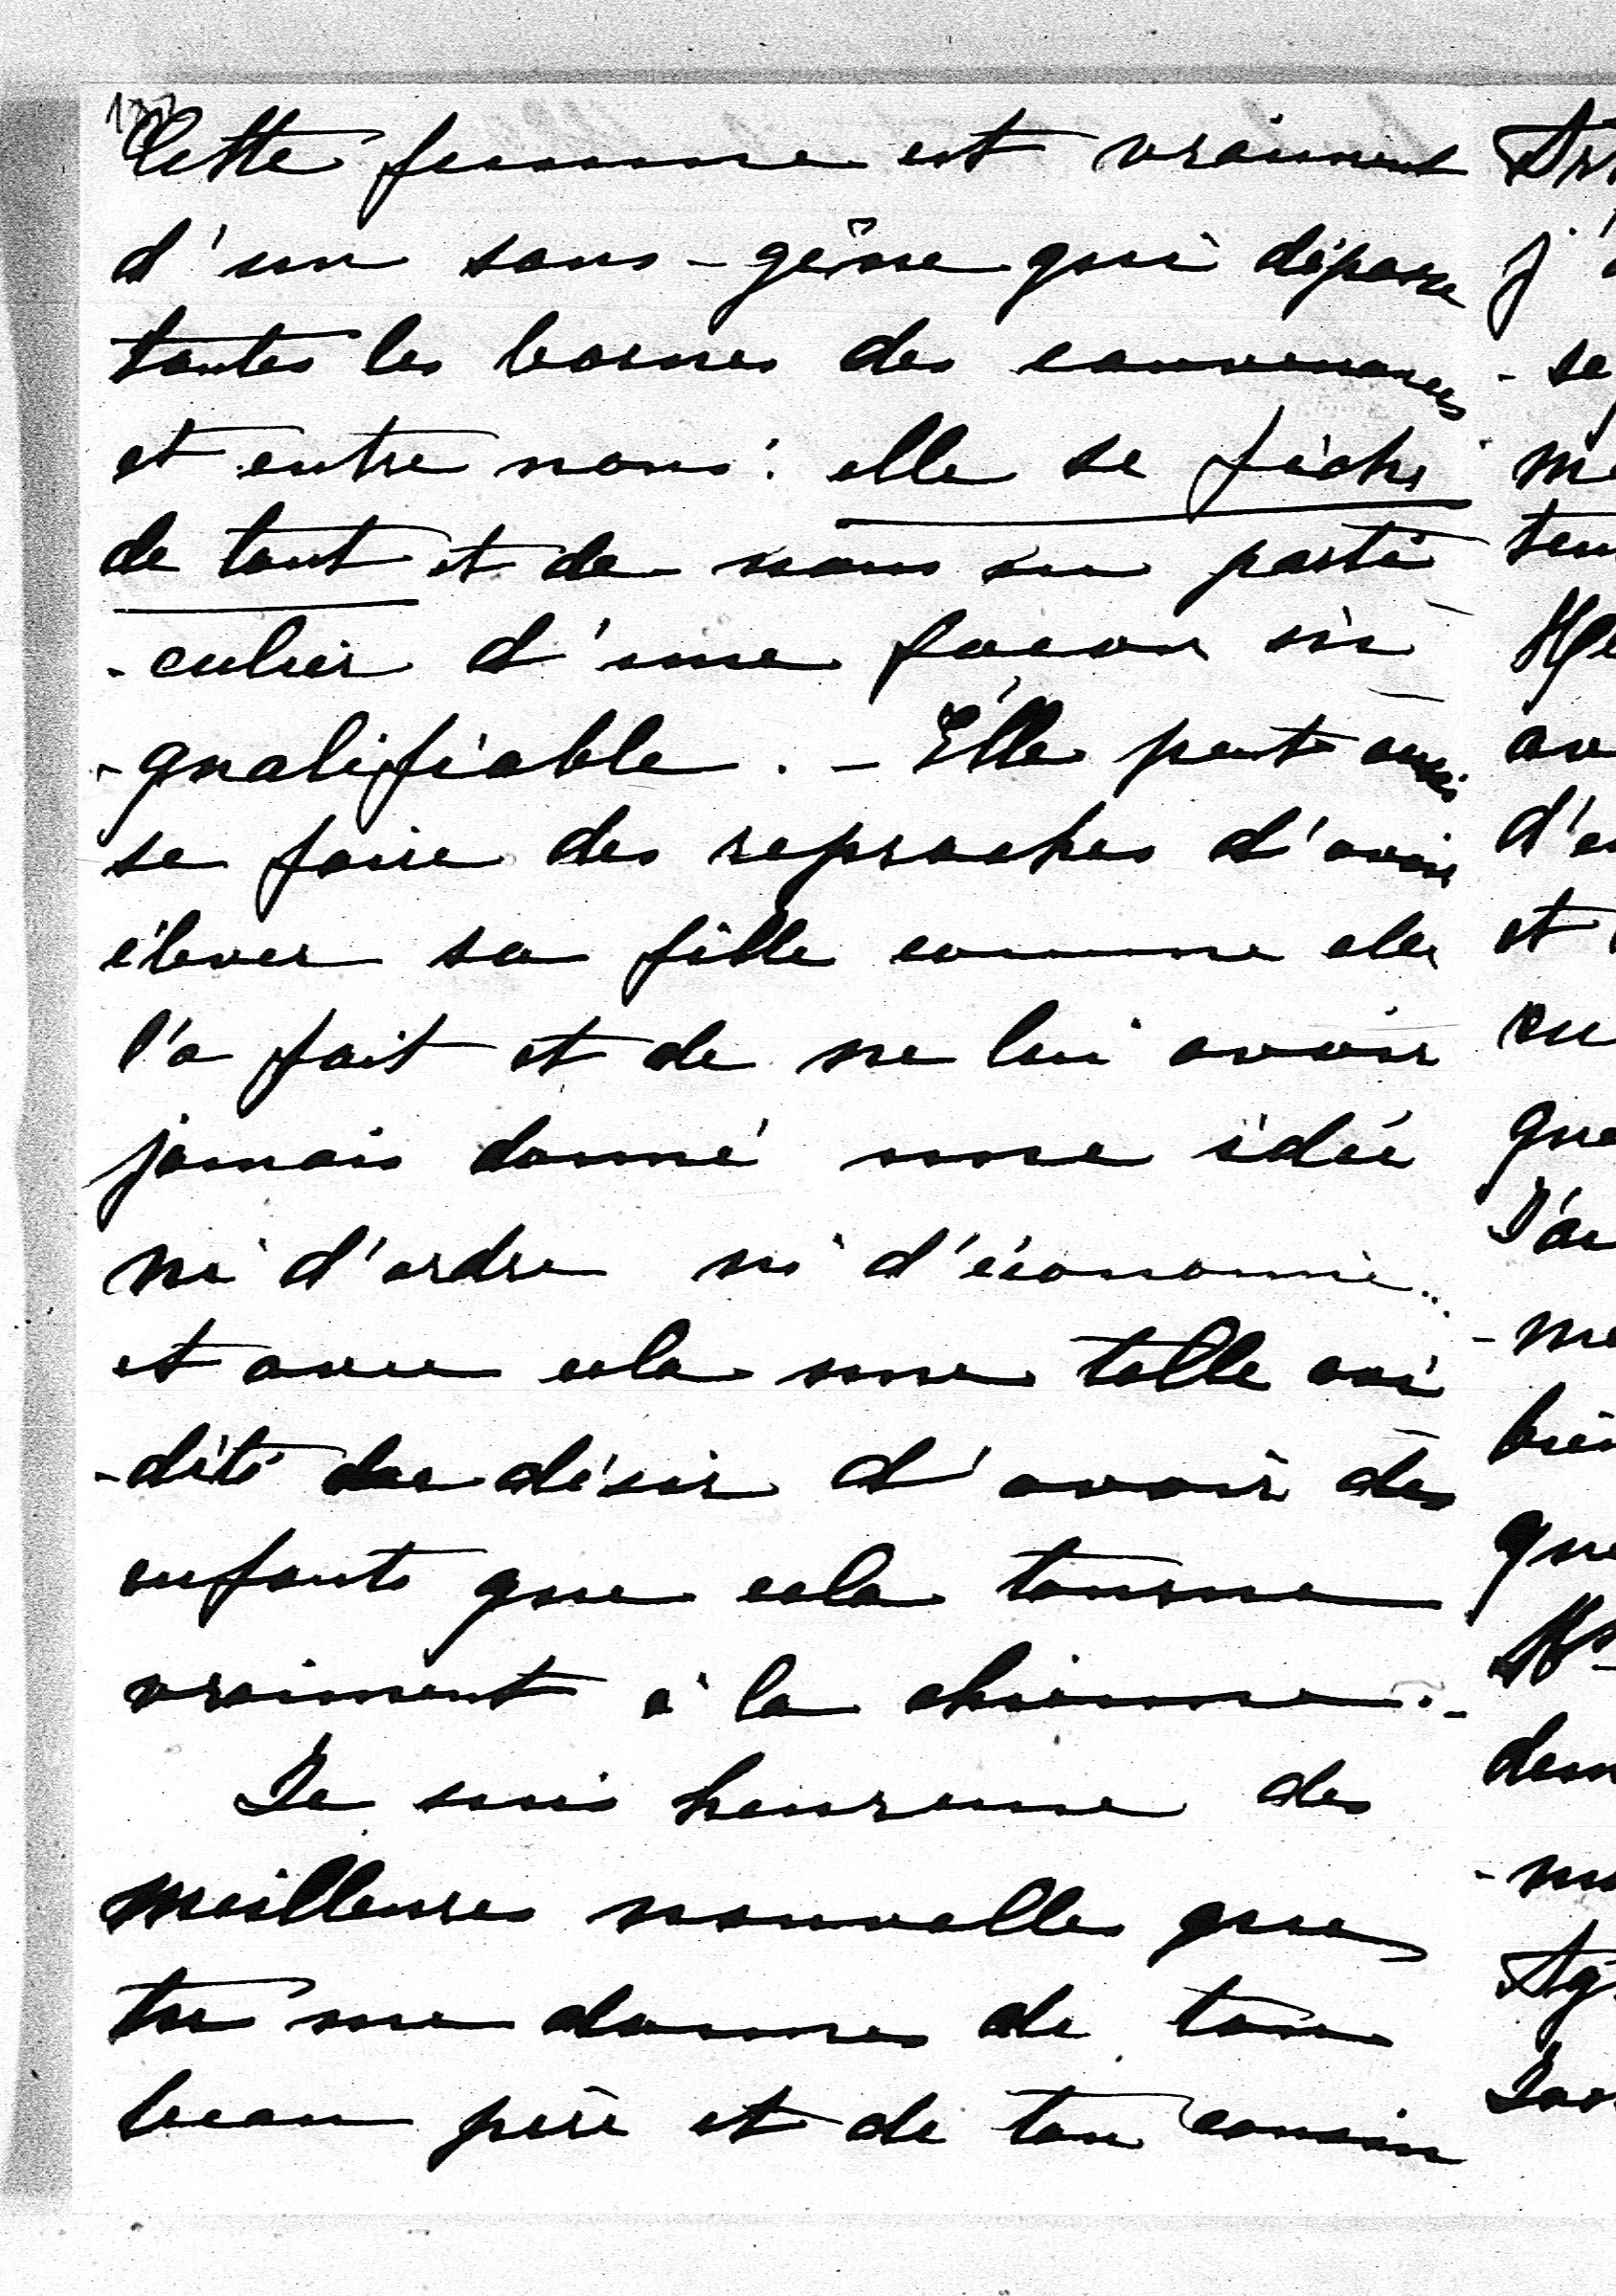 Cette femme est vraiment
d'un sans-gêne qui dépasse
toutes les bornes des convenances
et entre nous : elle se fiche
de tout et de nous en parti
-culier d'une façon in
-qualifiable. - Elle peut aussi
se faire des reproches d'avoir
élever sa fille comme elle
l'a fait et de ne lui avoir
jamais donné une idée
ni d'ordre ni d'économie...
et avec cela une telle avi
-dité de désir d'avoir des
enfants que cela tourne
vraiment à la chienne. -
Je suis heureuse des
meilleures nouvelles que
tu me donnes de ton
beau père et de ton cousin